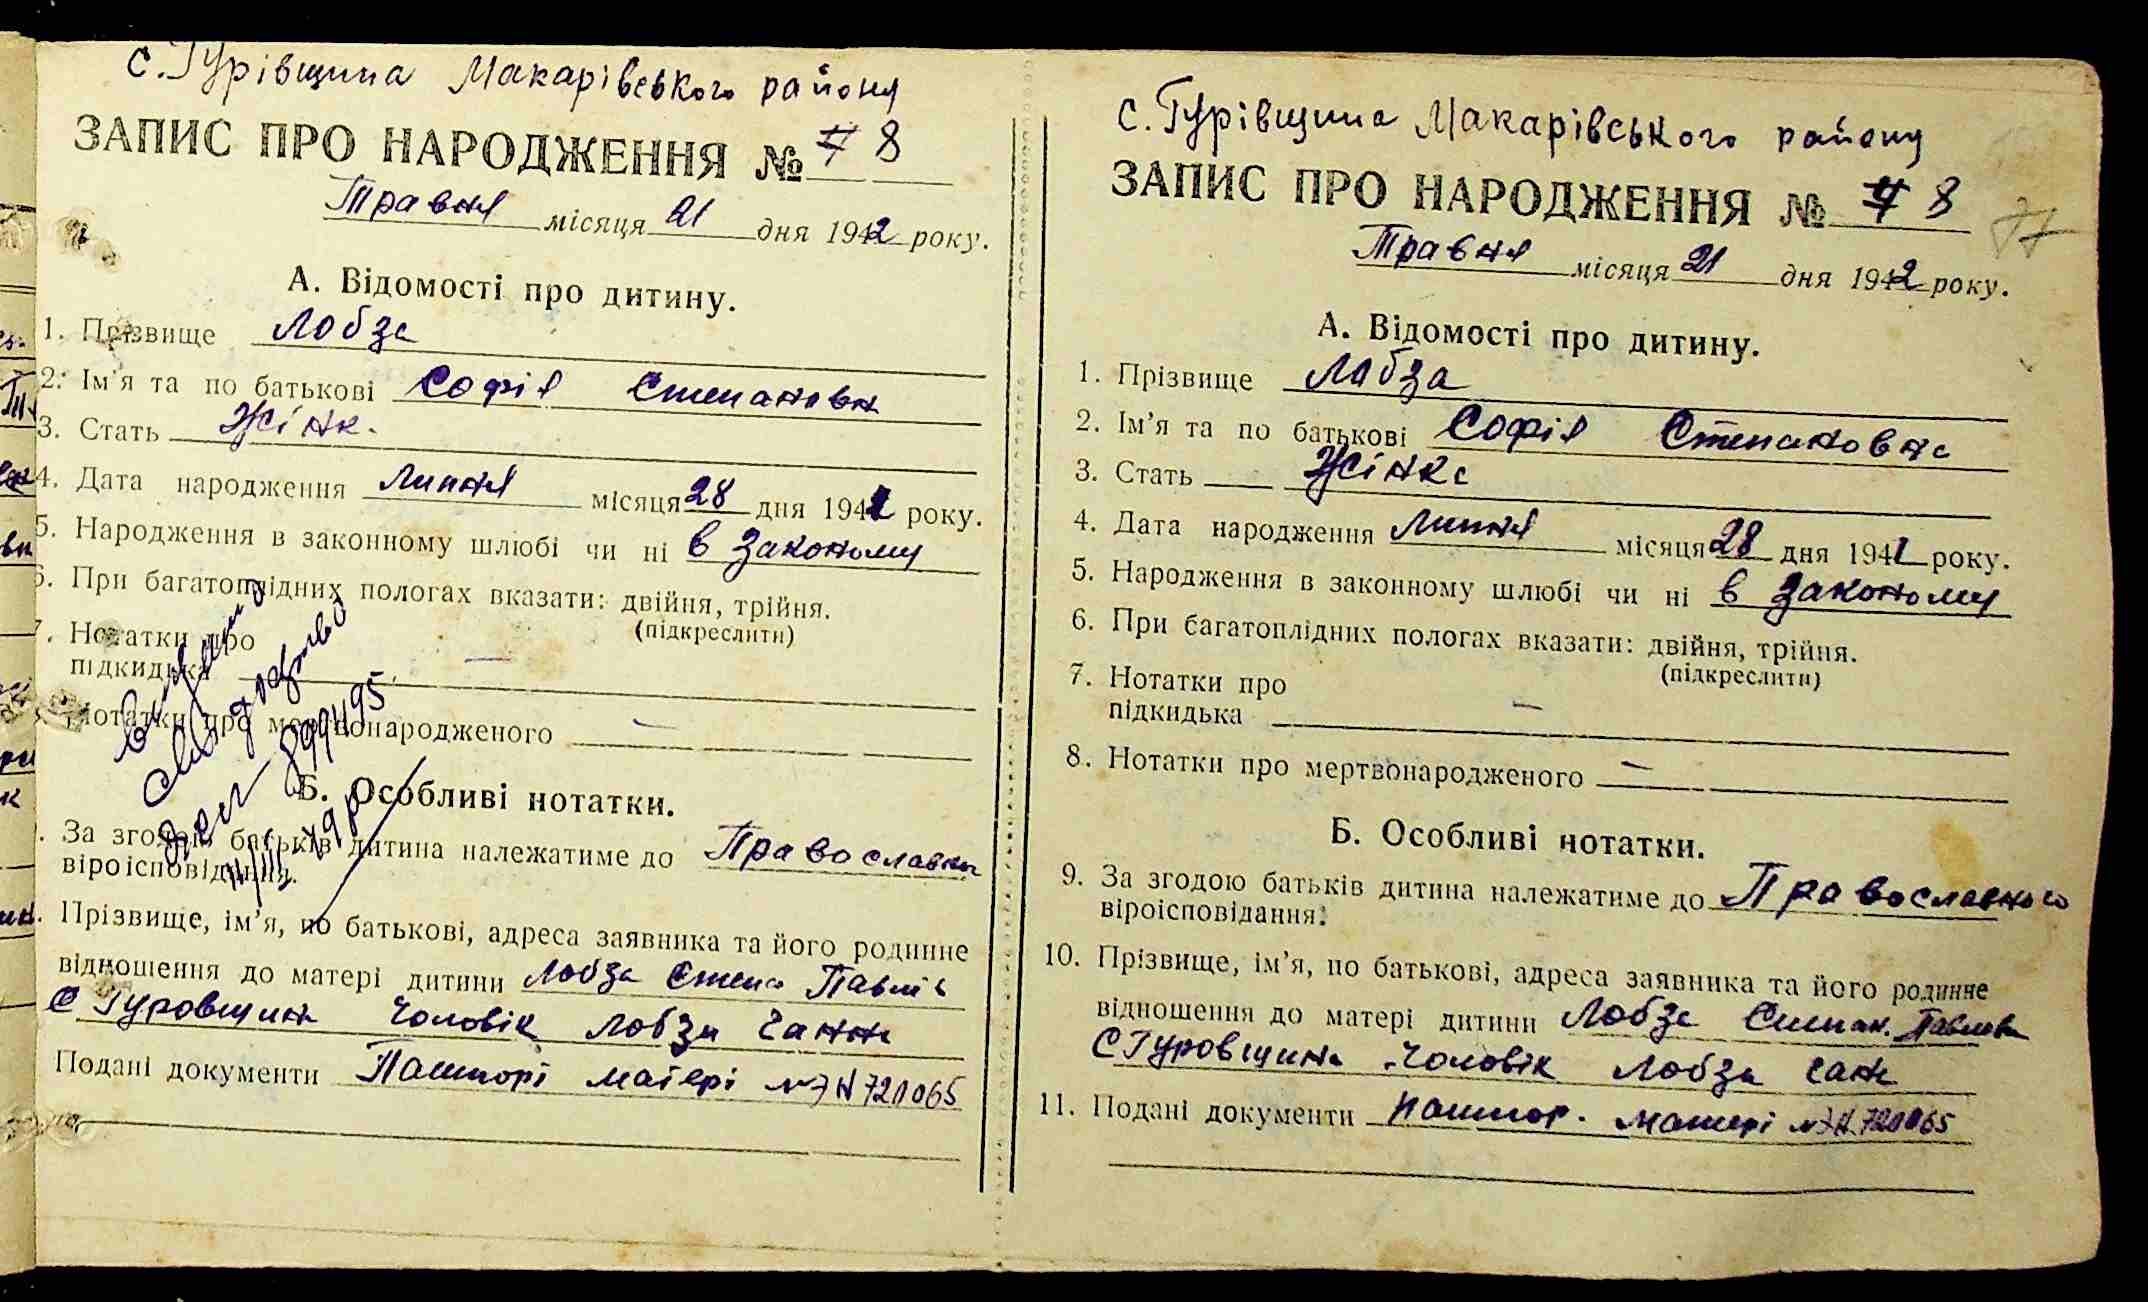 с. Гурівщина Макарівського району
ЗАПИС ПРО НАРОДЖЕННЯ № 8
Травня місяця 21 дня 1942 року.
А. Відомості про дитину.
1. Прізвище Лобза
2. Ім'я та по батькові Софія Степановн
3. Стать Жінк.
4. Дата народження Липня місяця 28 дня 1941 року.
5. Народження в законному шлюбі чи ні в законому
6. При багатоплідних пологах вказати: двійня, трійня.
(підкреслити)
7. Нотатки про
підкидька —
Нотатки про мертвонародженого —
Б. Особливі нотатки.
. За згодою батьків дитина належатиме до Православн
віроісповідання.
. Прізвище, ім'я, по батькові, адреса заявника та його родинне
відношення до матері дитини Лобза Степа Павлів
с Гуровщина Чоловік Лобзи Ганни
Подані документи Пашпорт матері № 720065
с. Гурівщина Макарівського району
ЗАПИС ПРО НАРОДЖЕННЯ № 8
77
Травня місяця 21 дня 1942 року.
А. Відомості про дитину.
1. Прізвище Лобза
2. Ім'я та по батькові Софія Степановна
3. Стать Жінка
4. Дата народження Липня місяця 28 дня 1941 року.
5. Народження в законному шлюбі чи ні в законому
6. При багатоплідних пологах вказати: двійня, трійня.
(підкреслити)
7. Нотатки про
підкидька —
8. Нотатки про мертвонародженого —
Б. Особливі нотатки.
9. За згодою батьків дитина належатиме до Православного
віроісповідання.
10. Прізвище, ім'я, по батькові, адреса заявника та його родинне
відношення до матері дитини Лобза Степан. Павлов
с Гуровщина Чоловік Лобзи Ган
11. Подані документи пашпор. матері № 720065